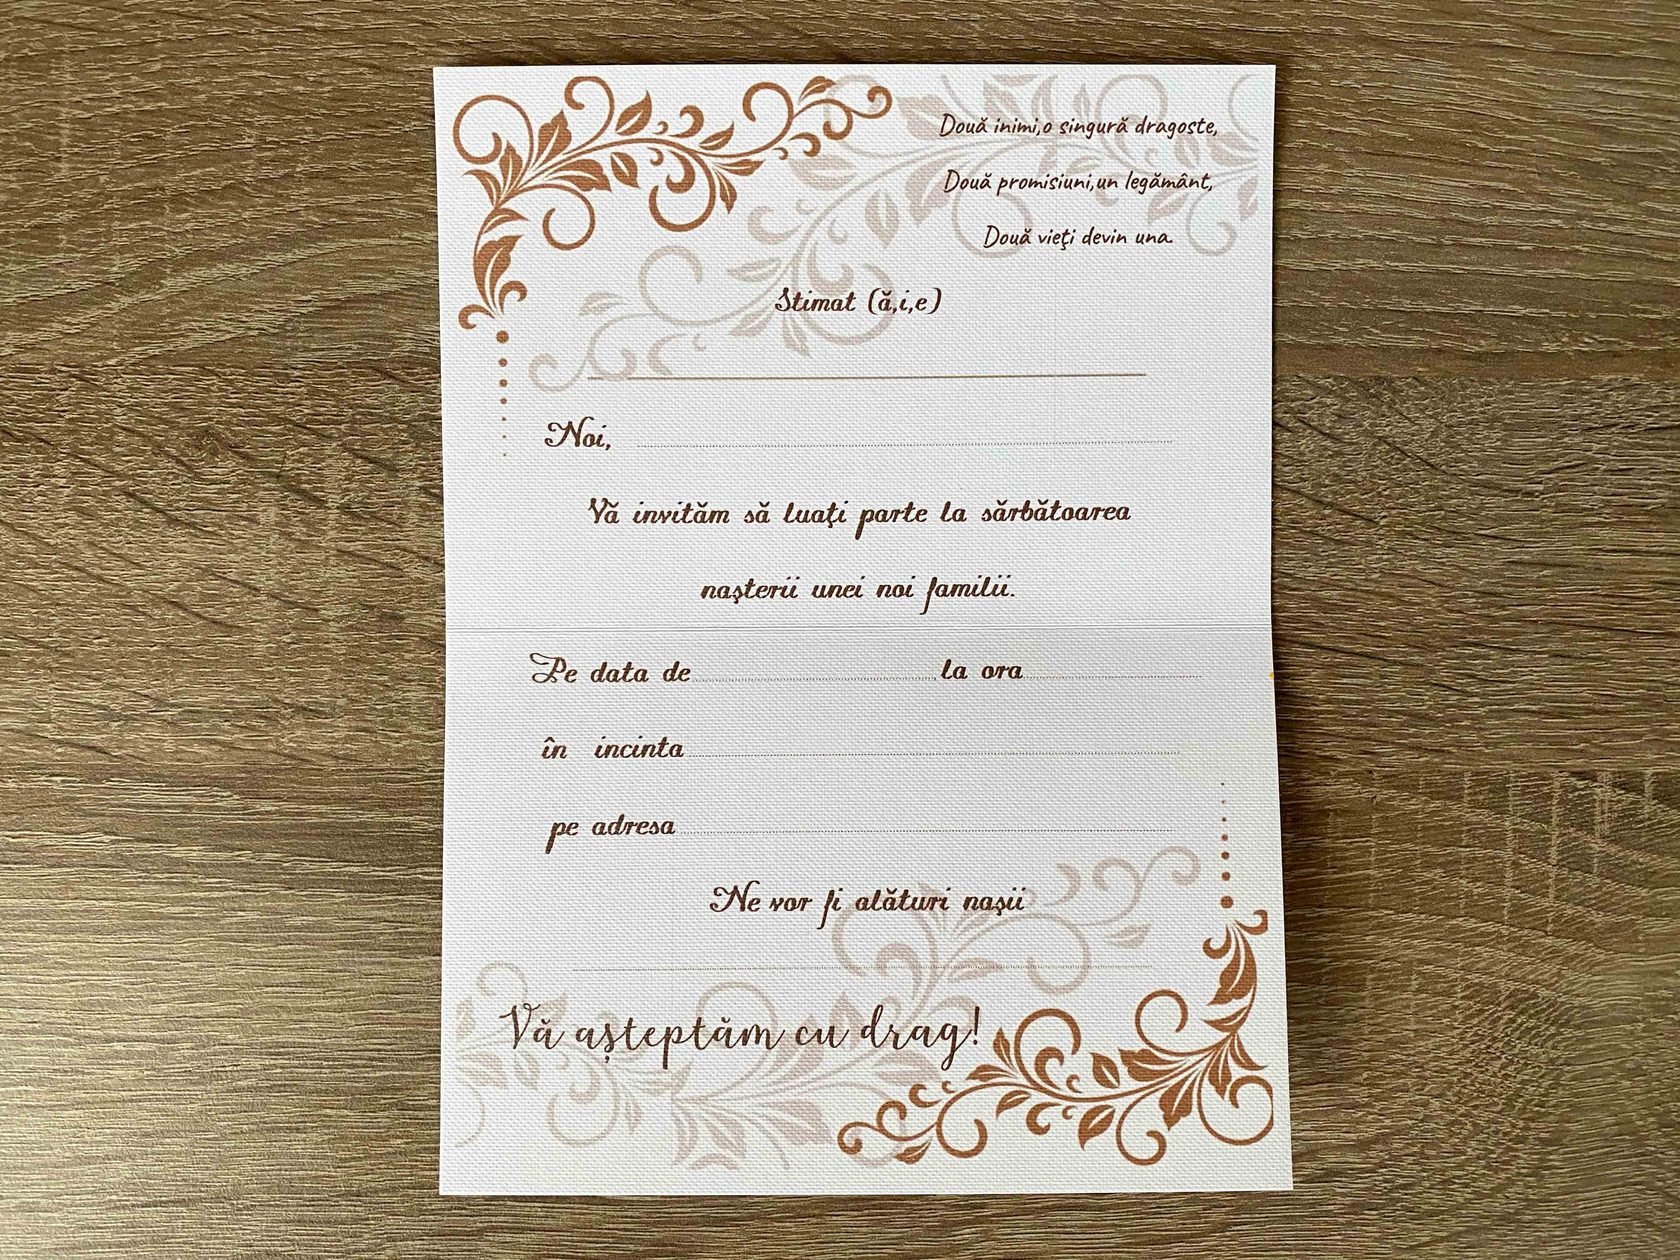 Două inimi,o singură dragoste,
Două promisiuni,un legământ,
Două vieţi devin una.
Stimat (ă,i,e)
Noi,
Vă invităm să luaţi parte la sărbătoarea
naşterii unei noi familii.
Pe data de la ora
în incinta
pe adresa
Ne vor fi alături naşii
Vă așteptăm cu drag!